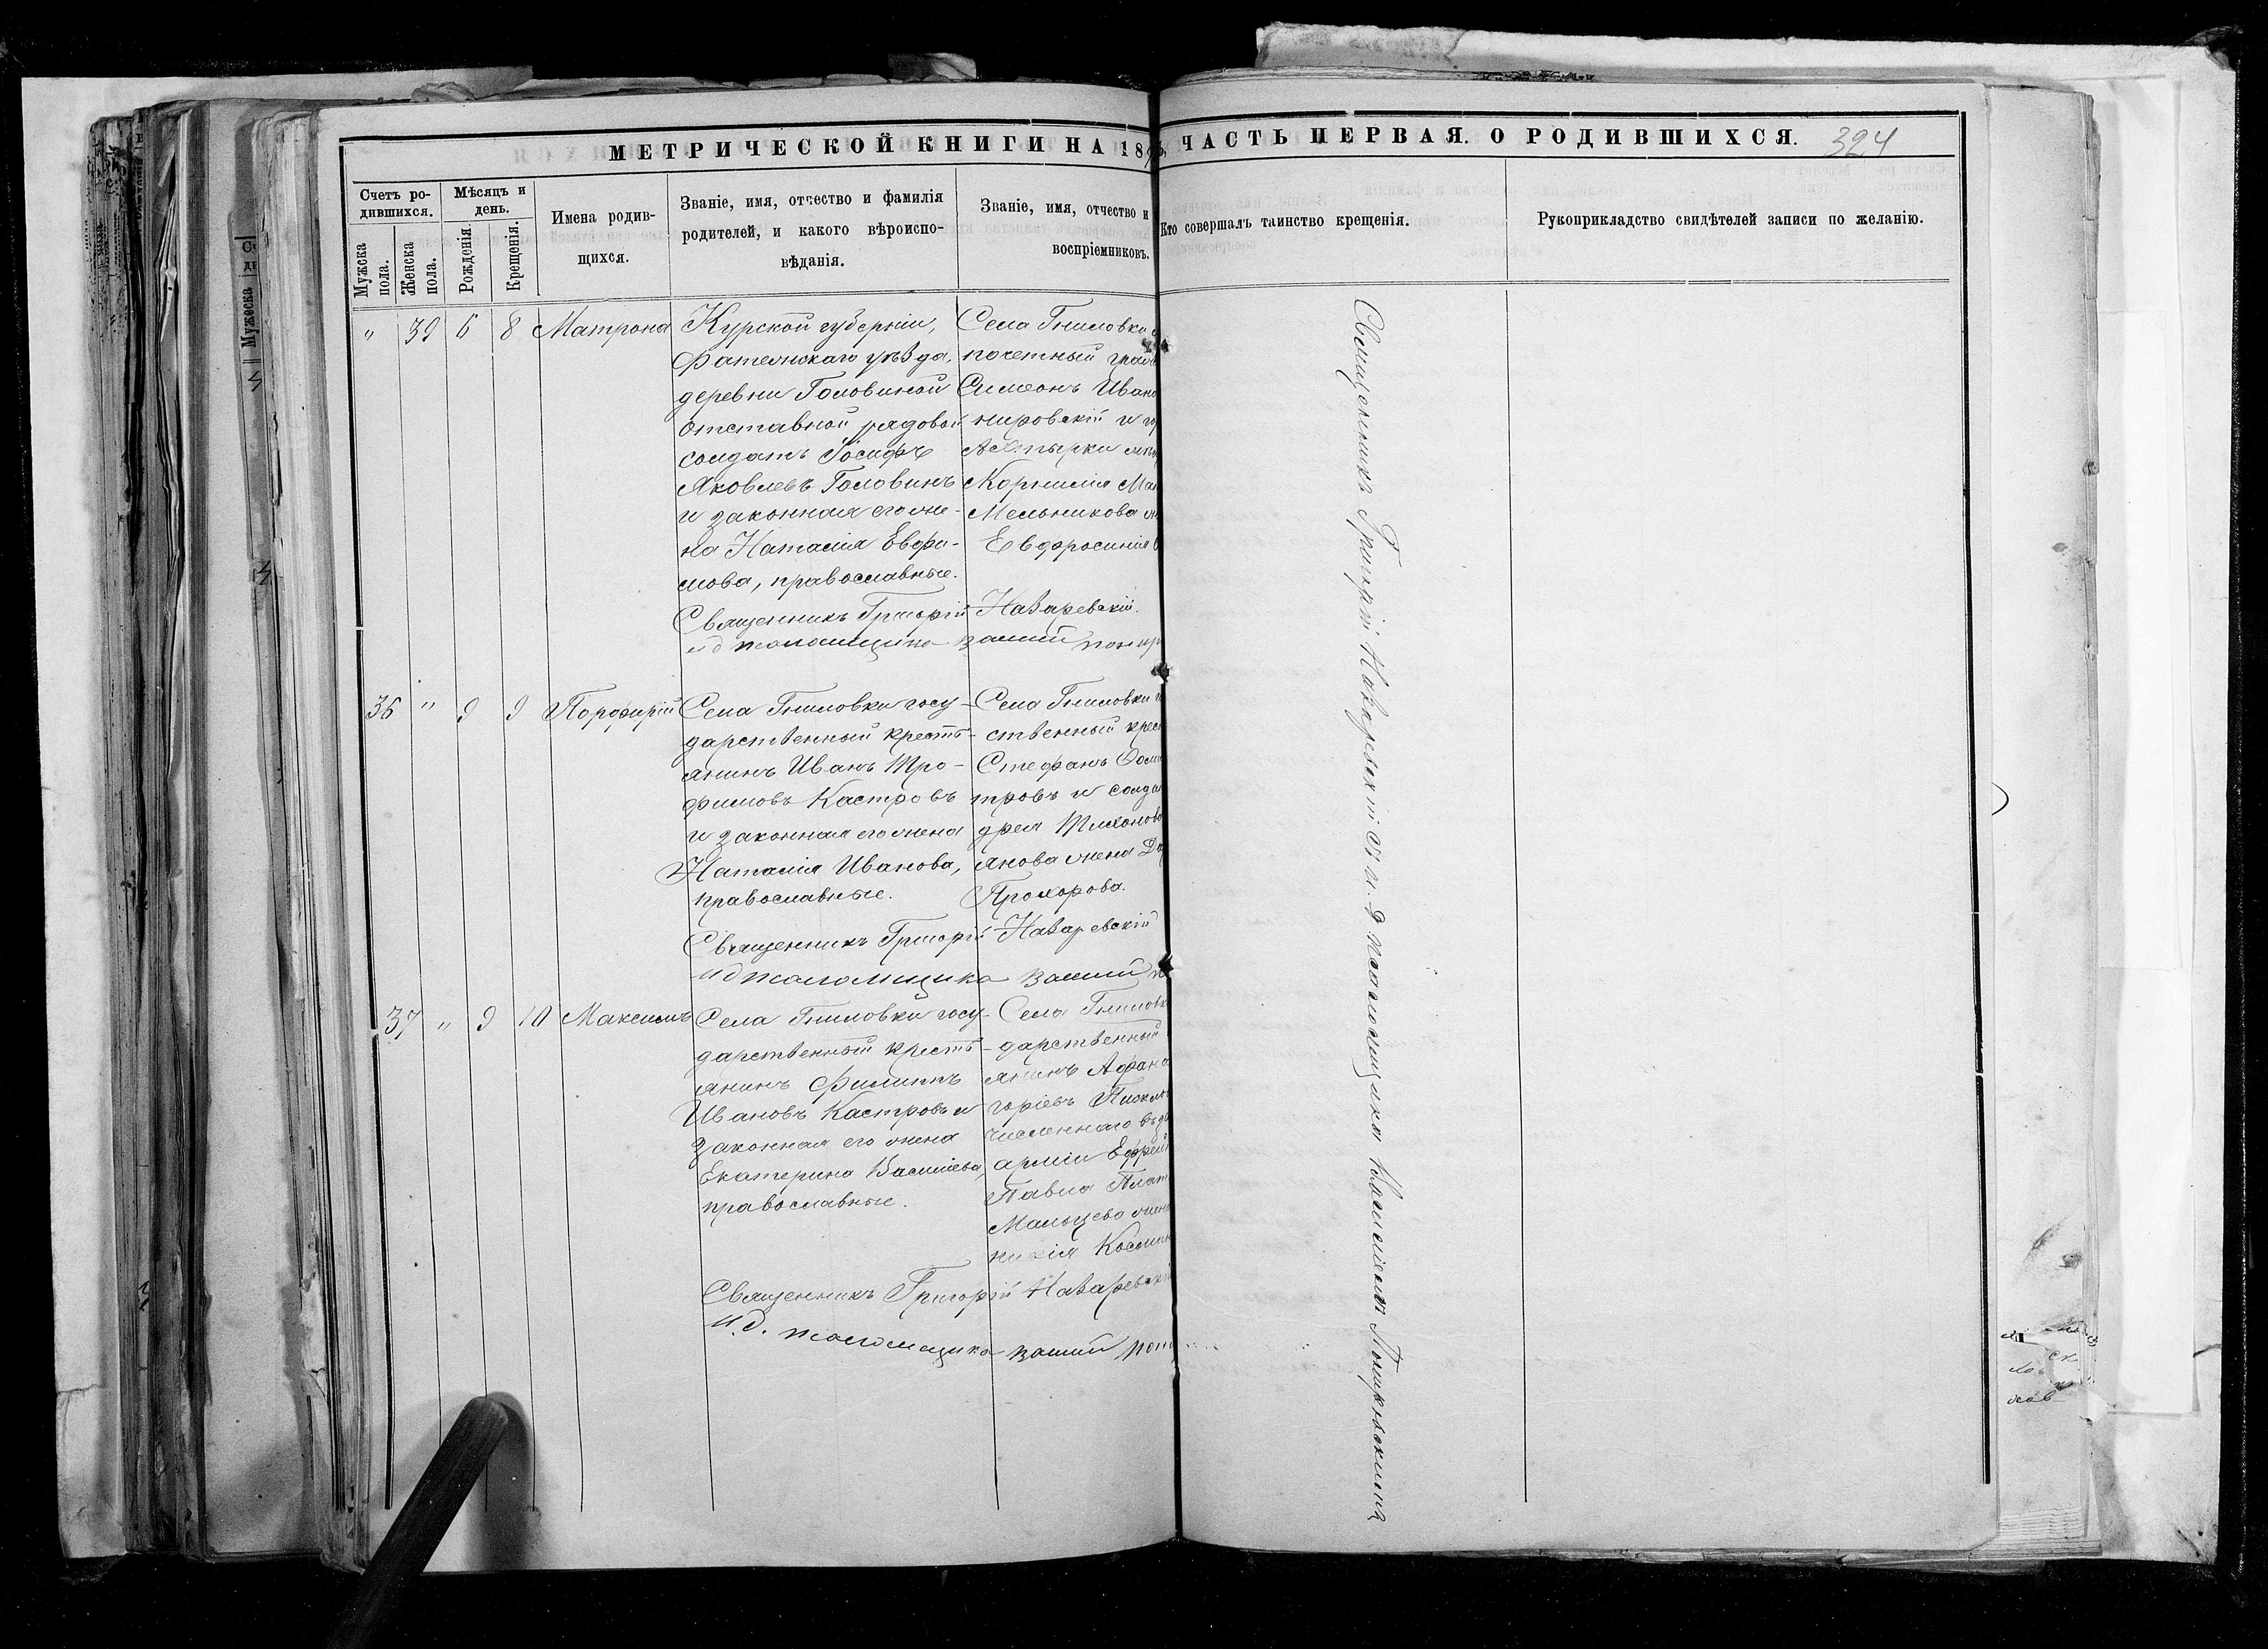 МЕТРИЧЕСКОЙ КНИГИ НА 18
ЧАСТЬ ПЕРВАЯ. О РОДИВШИХСЯ.
324
Счетъ ро-
дившихся.
Мужска пола.
Женска пола.
Мѣсяцъ и день.
Рожденія.
Крещенія.
Имена родив-
щихся.
Званіе, имя, отчество и фамилія
родителей, и какого вѣроиспо-
вѣданія.
Званіе, имя, отчество и
воспріемниковъ.
Кто совершалъ таинство крещенія.
Рукоприкладство свидѣтелей записи по желанію.
" 39 6 8 Матрона
Курской губерніи,
Фатежскаго уѣзда,
деревни Головиной
отставной рядовой
солдатъ Іосифъ
Яковлевъ Головинъ
и законная его же-
на Наталія Евфи-
мова, православные.
Села Гниловки
почетный
Симеонъ Ивано
нировскій и
Ахтырки
Корнилія
Мельникова
Евфросинія
Священникъ Григорій Назаревскій.
и д псаломщика
36 " 9 9 Порфирій
Села Гниловки госу-
дарственный кресть-
янинъ Иванъ Тро-
фимовъ Кастровъ
и законная его жена
Наталія Иванова,
православные.
Села Гниловки
ственный крес
Стефанъ
тровъ и солда
дрея Тихонова
янова жена
Прохорова.
Священникъ Григорій Назаревскій
и д псаломщика
37 " 9 10 Максимъ
Села Гниловки госу-
дарственный кресть-
янинъ Филиппъ
Ивановъ Кастровъ и
законная его жена
Екатерина Василіева,
православные.
Села Гниловк
дарственный
янинъ Афана
горіевъ
численнаго
арміи
Павла Плат
Мальцева жен
Косьмин
Священникъ Григорій Назаревскі
и.д. псаломщика
Священникъ Григорій Назаревскій и и.д псаломщика